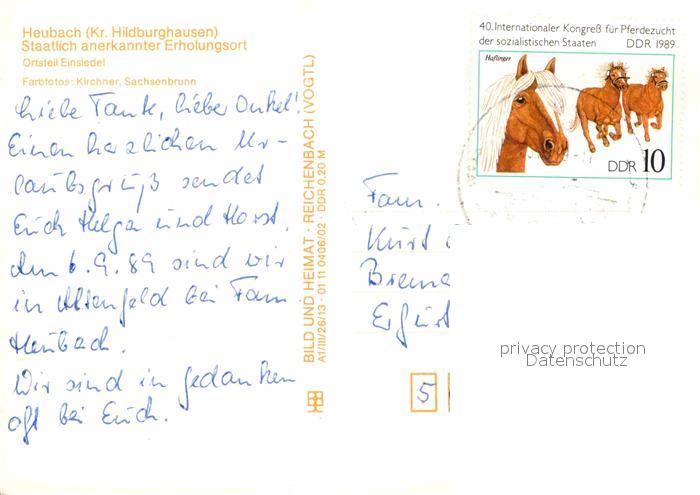 Heubach (Kr. Hildburghausen)
Staatlich anerkannter Erholungsort
Ortsteil Einsiedel
Farbfotos: Kirchner, Sachsenbrunn
Liebe Tante, lieber Onkel!
Einen herzlichen Ur-
laubsgruß sendet
Euch Helga und Horst.
Am 6.9.89 sind wir
in Altenfeld bei Fam
Heubach.
Wir sind in Gedanken
oft bei Euch.
BILD UND HEIMAT · REICHENBACH (VOGTL)
A1/III/26/13 · 01 11 0406/02 · DDR 0,20 M
40. Internationaler Kongreß für Pferdezucht
der sozialistischen Staaten DDR 1989
Haflinger
DDR 10
Fam.
Kurt
Breme
Erfurt
privacy protection
Datenschutz
5